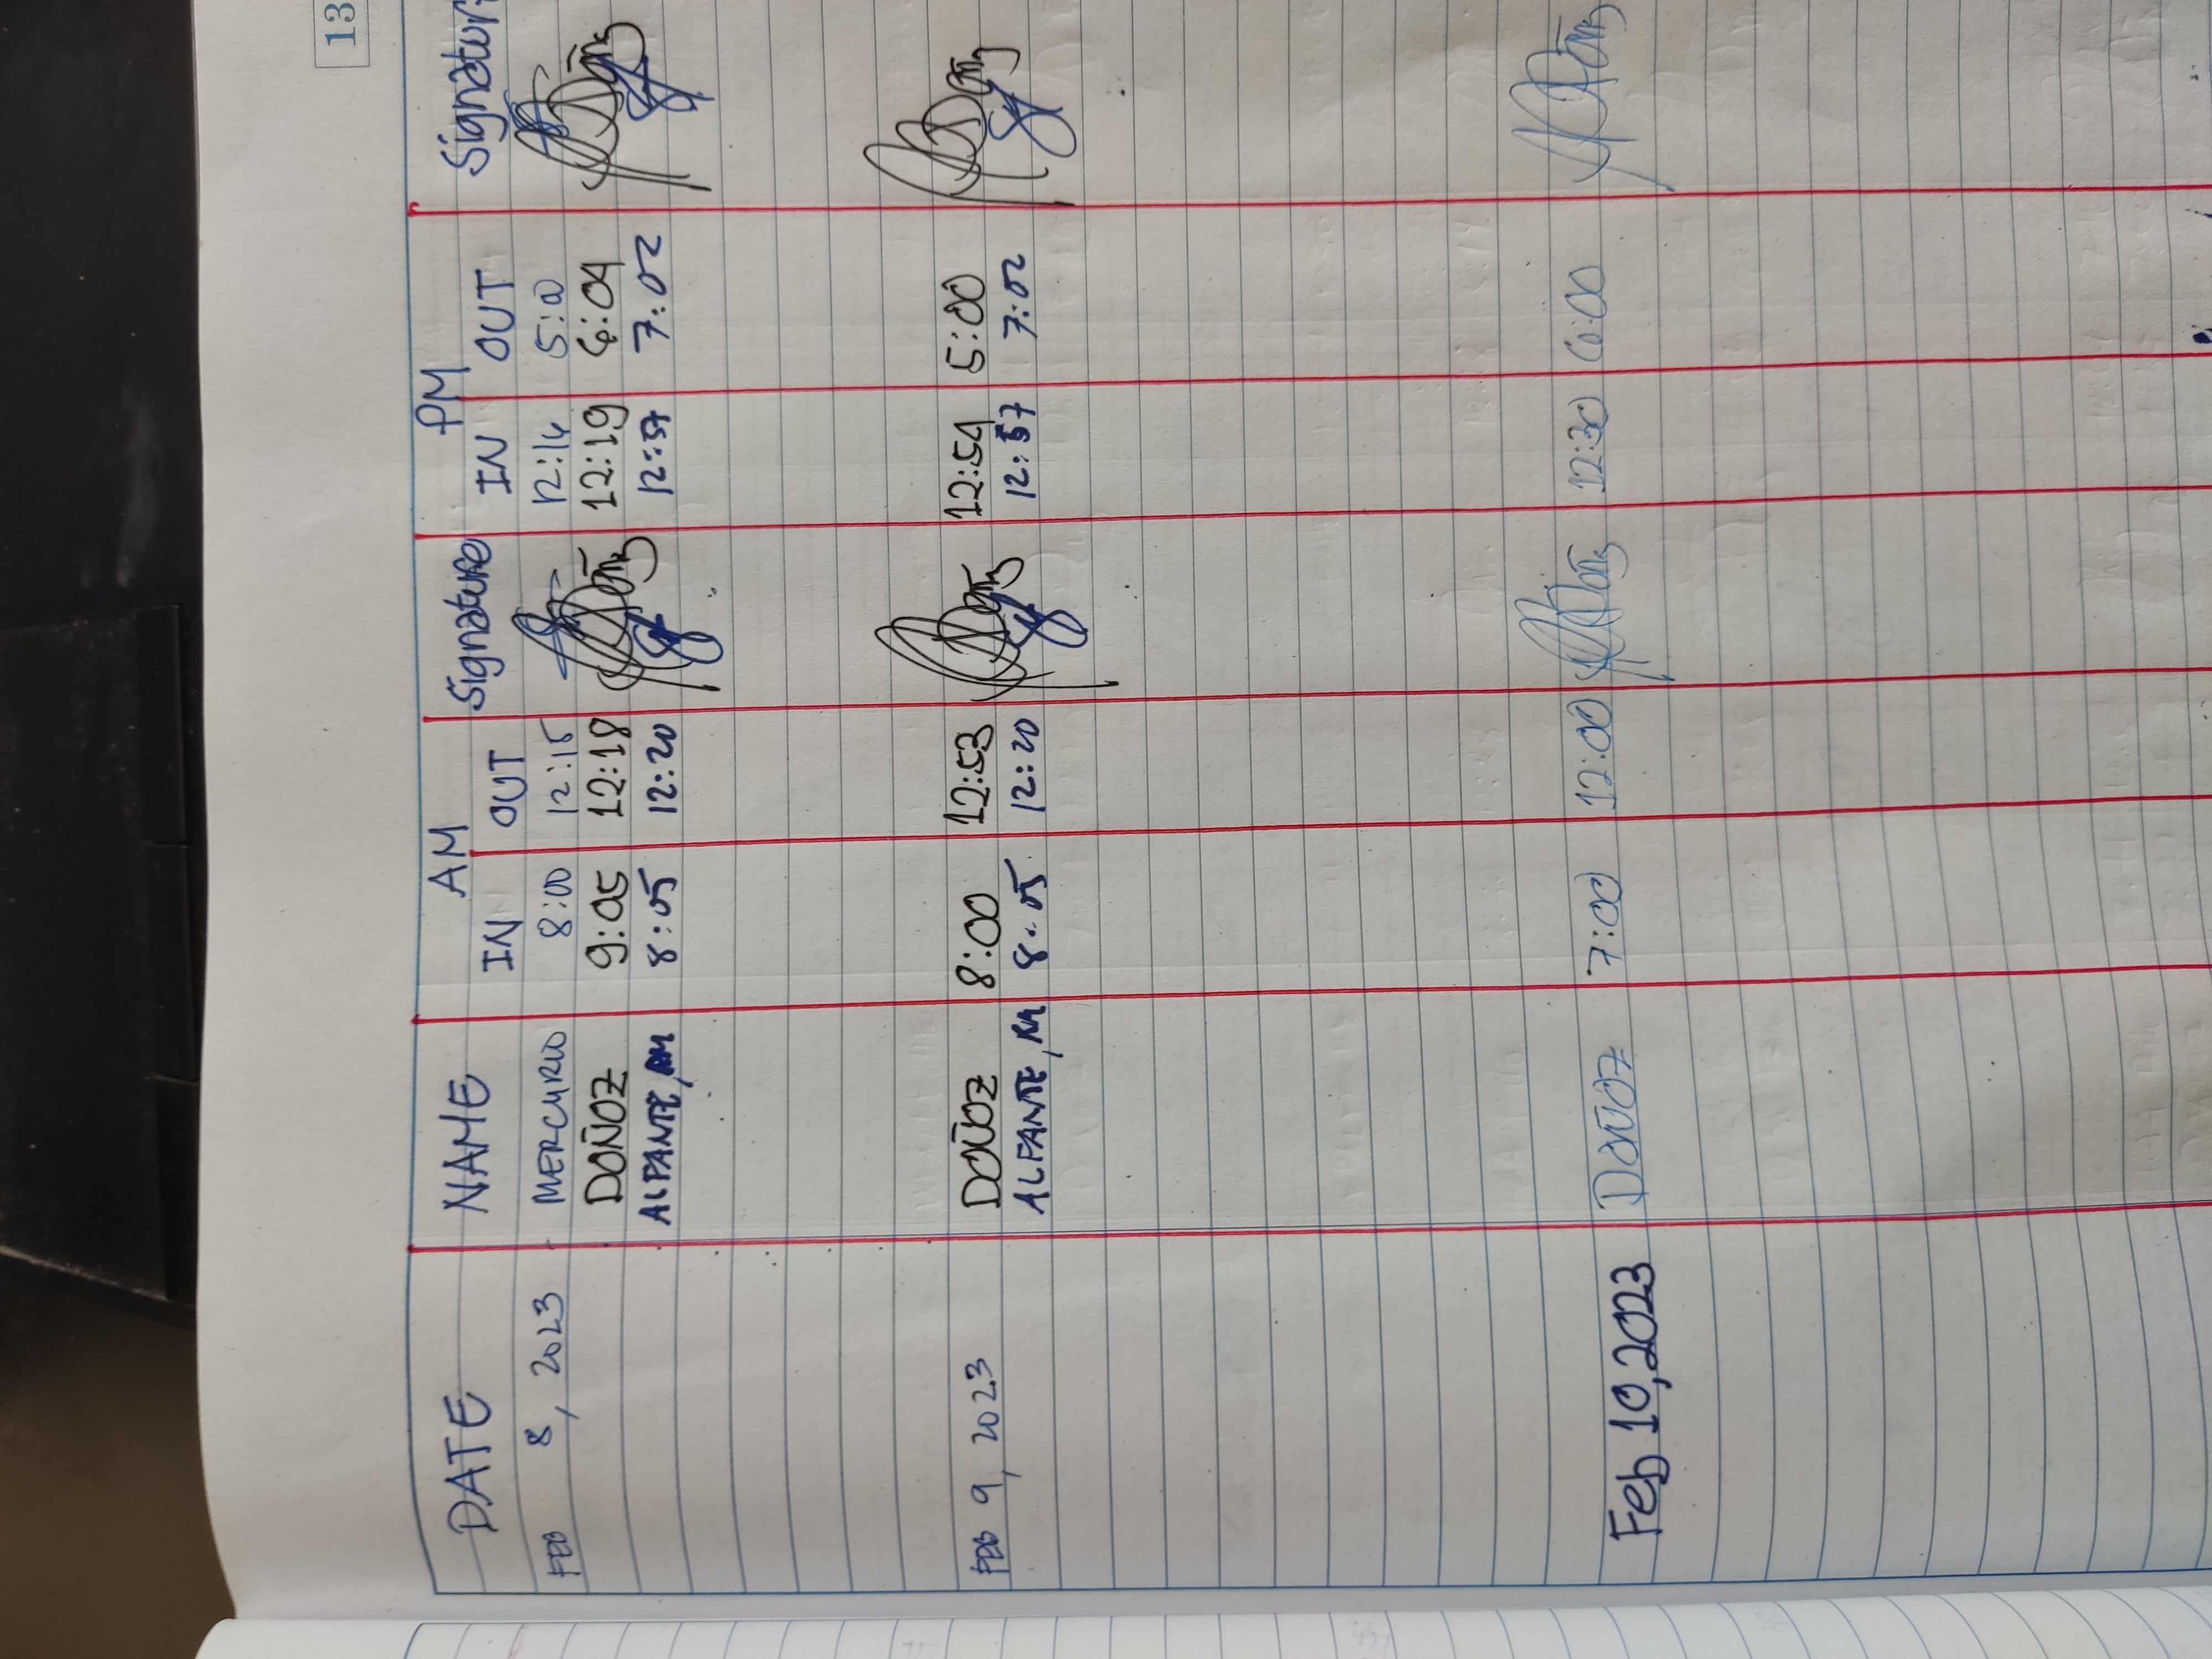 13
AM PM
DATE NAME IN OUT Signature IN OUT Signature
FEB 8, 2023 MERCURIO 8:00 12:15 12:16 5:00
DOÑOZ 9:05 12:18 12:19 6:04
ALFANTE, RM 8:05 12:20 12:57 7:02
FEB 9, 2023 DOÑOZ 8:00 12:53 12:54 5:00
ALFANTE, RM 8:05 12:20 12:57 7:02
Feb 10, 2023 DOÑOZ 7:00 12:00 12:30 6:00